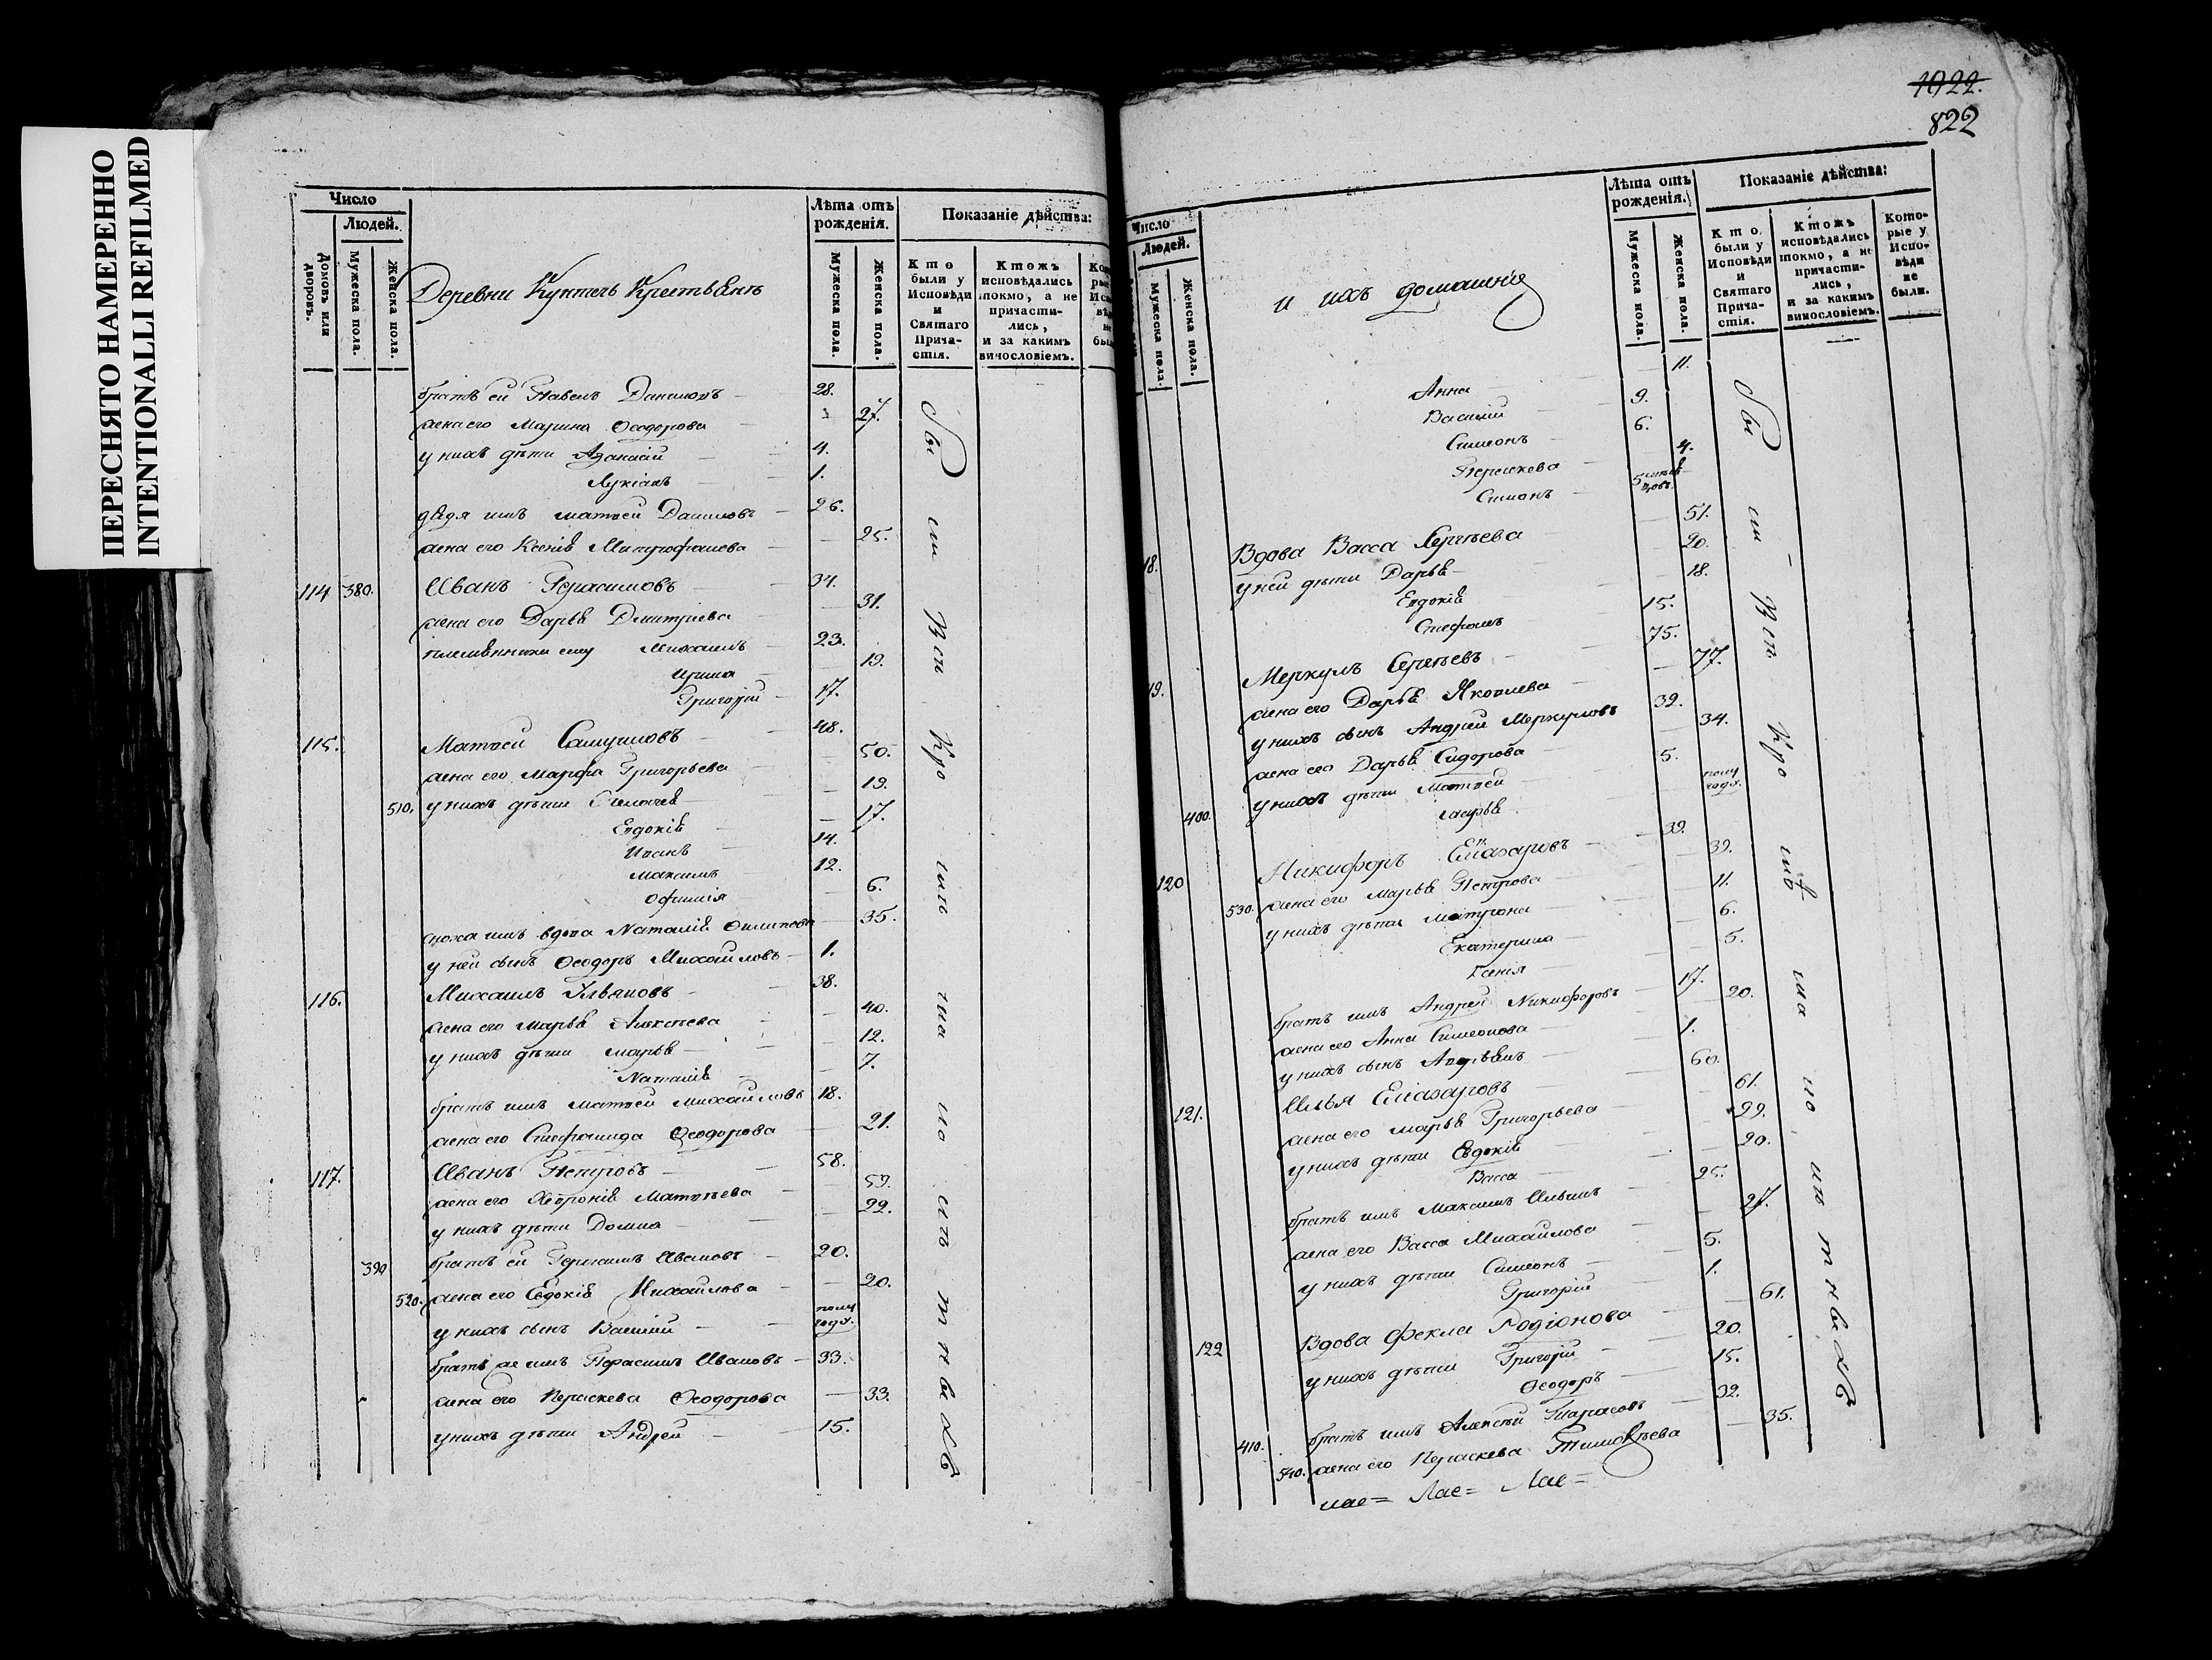 ПЕРЕСНЯТО НАМЕРЕННО
INTENTIONALLI REFILMED
Число
Людей.
Домовъ или дворовъ.
Мужеска пола.
Женска пола.
Деревни Крестьянъ
Лѣта отъ рожденія.
Мужеска пола.
Женска пола.
Показаніе дѣйства:
Кто были у Исповѣди и Святаго Причастія.
Ктожъ исповѣдались токмо, а не причастились, и за какимъ вичословіемъ.
братъ ей Павелъ Даниловъ 28.
жена его Марина Ѳеодорова 27.
у нихъ дѣти Аѳанасій 4.
Лукіанъ 1.
дядя имъ Матѳей Даниловъ 26.
жена его Ксенія Митрофанова 25.
114 380. Иванъ Герасимовъ 34.
жена его Дарья Дмитріева 31.
племянники ему Михаилъ 23.
Ирина 19.
Григорій 17.
115. Матѳей Самуиловъ 48.
жена его Марѳа Григорьева 50.
510. у нихъ дѣти 19.
Евдокія 17.
Иванъ 14.
Максимъ 12.
Офимія 6.
сноха имъ вдова Наталія Филипова 35.
у ней сынъ Ѳеодоръ Михайловъ 1.
116. Михаилъ Ульяновъ 38.
жена его Марья Алексѣева 40.
у нихъ дѣти Марья 12.
Наталія 7.
братъ имъ Матѳей Михайловъ 18.
жена его Стефанида Ѳеодорова 21.
117. Иванъ Петровъ 58.
жена его Матвѣева 59.
у нихъ дѣти Домна 22.
390 братъ ей Герасимъ Ивановъ 20.
520. жена его Евдокія Михайлова 20.
у нихъ сынъ Василій полу года.
братъ же имъ Герасимъ Ивановъ 33.
жена его Параскева Ѳеодорова 33.
у нихъ дѣти Андрей 15.
1022.
822
Число
Людей.
Мужеска пола.
Женска пола.
и ихъ домашнія
Лѣта отъ рожденія.
Мужеска пола.
Женска пола.
Показаніе дѣйства:
Кто были у Исповѣди и Святаго Причастія.
Ктожъ исповѣдались токмо, а не причастились, и за какимъ винословіемъ.
Которые у Исповѣди не были.
Анна 11.
Василій 9.
Симеонъ 6.
Параскева 4.
Симонъ 5
18. Вдова Васса Сергѣева 51.
у ней дѣти Дарья 20.
Евдокія 18.
Стефанъ 15.
19. Меркулъ Сергѣевъ 75.
жена его Дарья Яковлева 77.
у нихъ сынъ Андрей Меркуловъ 39.
жена его Дарья Сидорова 34.
у нихъ дѣти Матѳей 5.
400. Марья полу года.
120 Никифоръ Елеазаровъ 39.
530. жена его Марья Петрова 39.
у нихъ дѣти Матрона 11.
Екатерина 6.
Ксенія 5.
братъ имъ Андрей Никифоровъ 17.
жена его Анна Симеонова 20.
у нихъ сынъ 1.
121. Илья Елеазаровъ 60.
жена его Марья Григорьева 61.
у нихъ дѣти Евдокія 22.
Васса 20.
братъ имъ Максимъ Ильинъ 25.
жена его Васса Михайлова 27.
у нихъ дѣти Симеонъ 5.
Григорій 1.
122 Вдова Фекла Родіонова 61.
у нихъ дѣти Григорій 20.
Ѳеодоръ 15.
410. братъ имъ Алексѣй Тарасовъ 32.
540. жена его Параскева Тимоѳѣева 35.